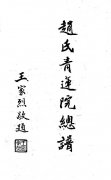 趙氏青蓮院總譜
王家烈敬題